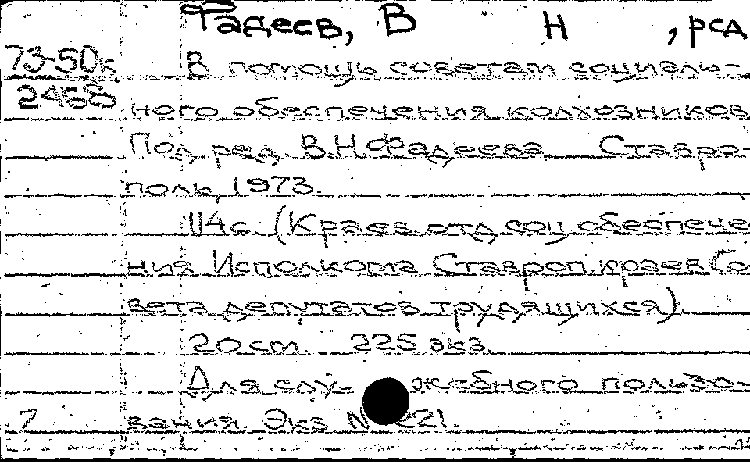 Фадеев, В Н , ред
73-50к В помощь советам социаль-
2468 ного обеспечения колхозников
Под ред В.Н Фадеева Ставро-
поль, 1973.
114с (Краев отд соц обеспече
ния Исполкома Ставроп краев Со
вета депутатов трудящихся)
20 см 225 экз.
Для слу- жебного пользо-
7 вания Экз № 221.